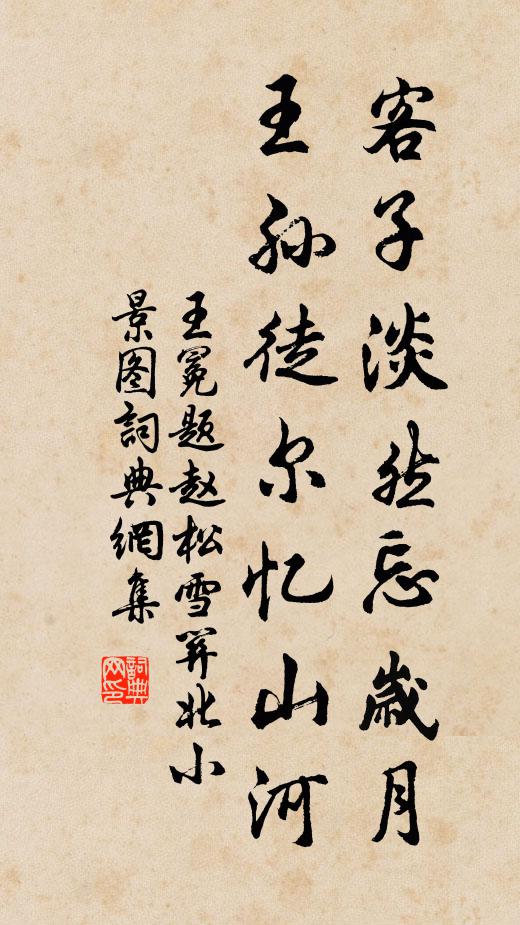 客子淡然忘歲月
王孙徒尔忆山河
王冕题赵松雪北小
景图詞典網集
詞典网印